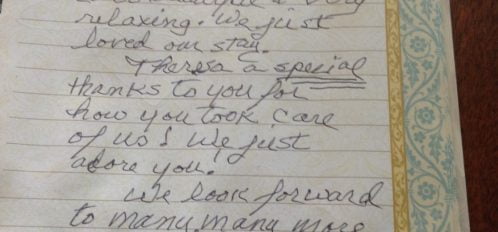 very
relaxing. We just
loved our stay.
Theresa a special
thanks to you for
how you took care
of us! We just
adore you.
We look forward
to many, many more